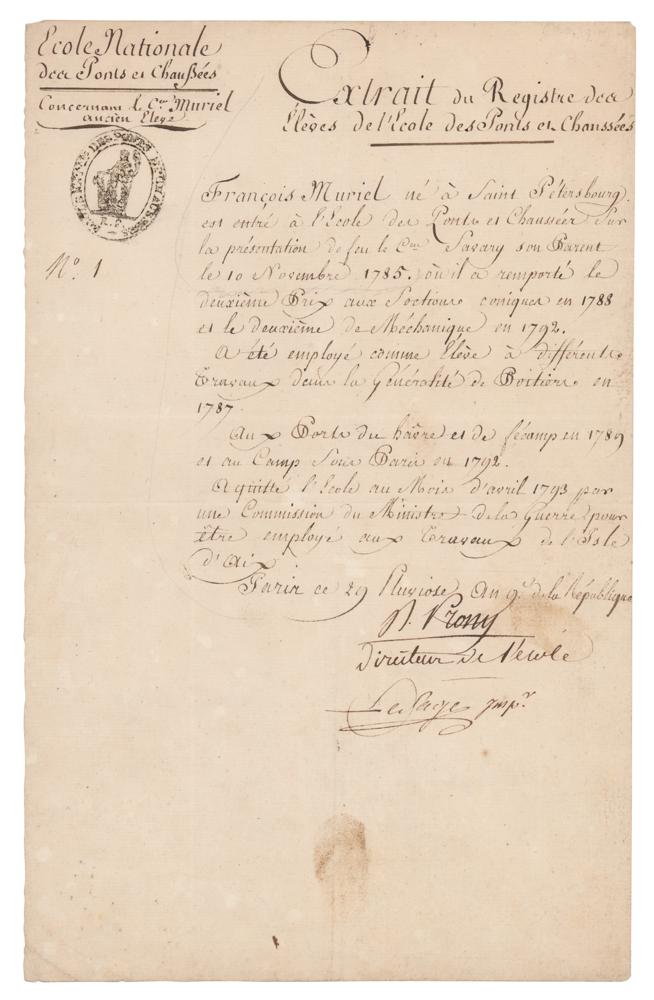 Ecole Nationale
des Ponts et Chaussées
Concernant le Cen. Muriel
ancien Eleve
Extrait du Registre des
Elèves de l'Ecole des Ponts et Chaussées
DES PONTS ET CHAUSSÉES
R. F.
N.° 1
François Muriel né à Saint Pétersbourg.
est entré à l'Ecole des Ponts et Chaussées sur
la présentation de feu le Cen. Savary son Parent
le 10 Novembre 1785. où il a remporté le
deuxième Prix aux Sections coniques en 1788
et le deuxième de Méchanique en 1792.
A été employé comme Elève à différents
Travaux dans la Généralité de Poitiers en
1787
Aux Ports du hâvre et de fécamp en 1789
et au Camp sous Paris en 1792.
A quitté l'Ecole au Mois d'avril 1793 par
une Commission du Ministre de la Guerre pour
être employé aux Travaux de l'Isle
d'Aix.
Paris ce 29 Pluviose An 9.e de la République
R. Prony
Directeur de l'école
LeSage inspr.